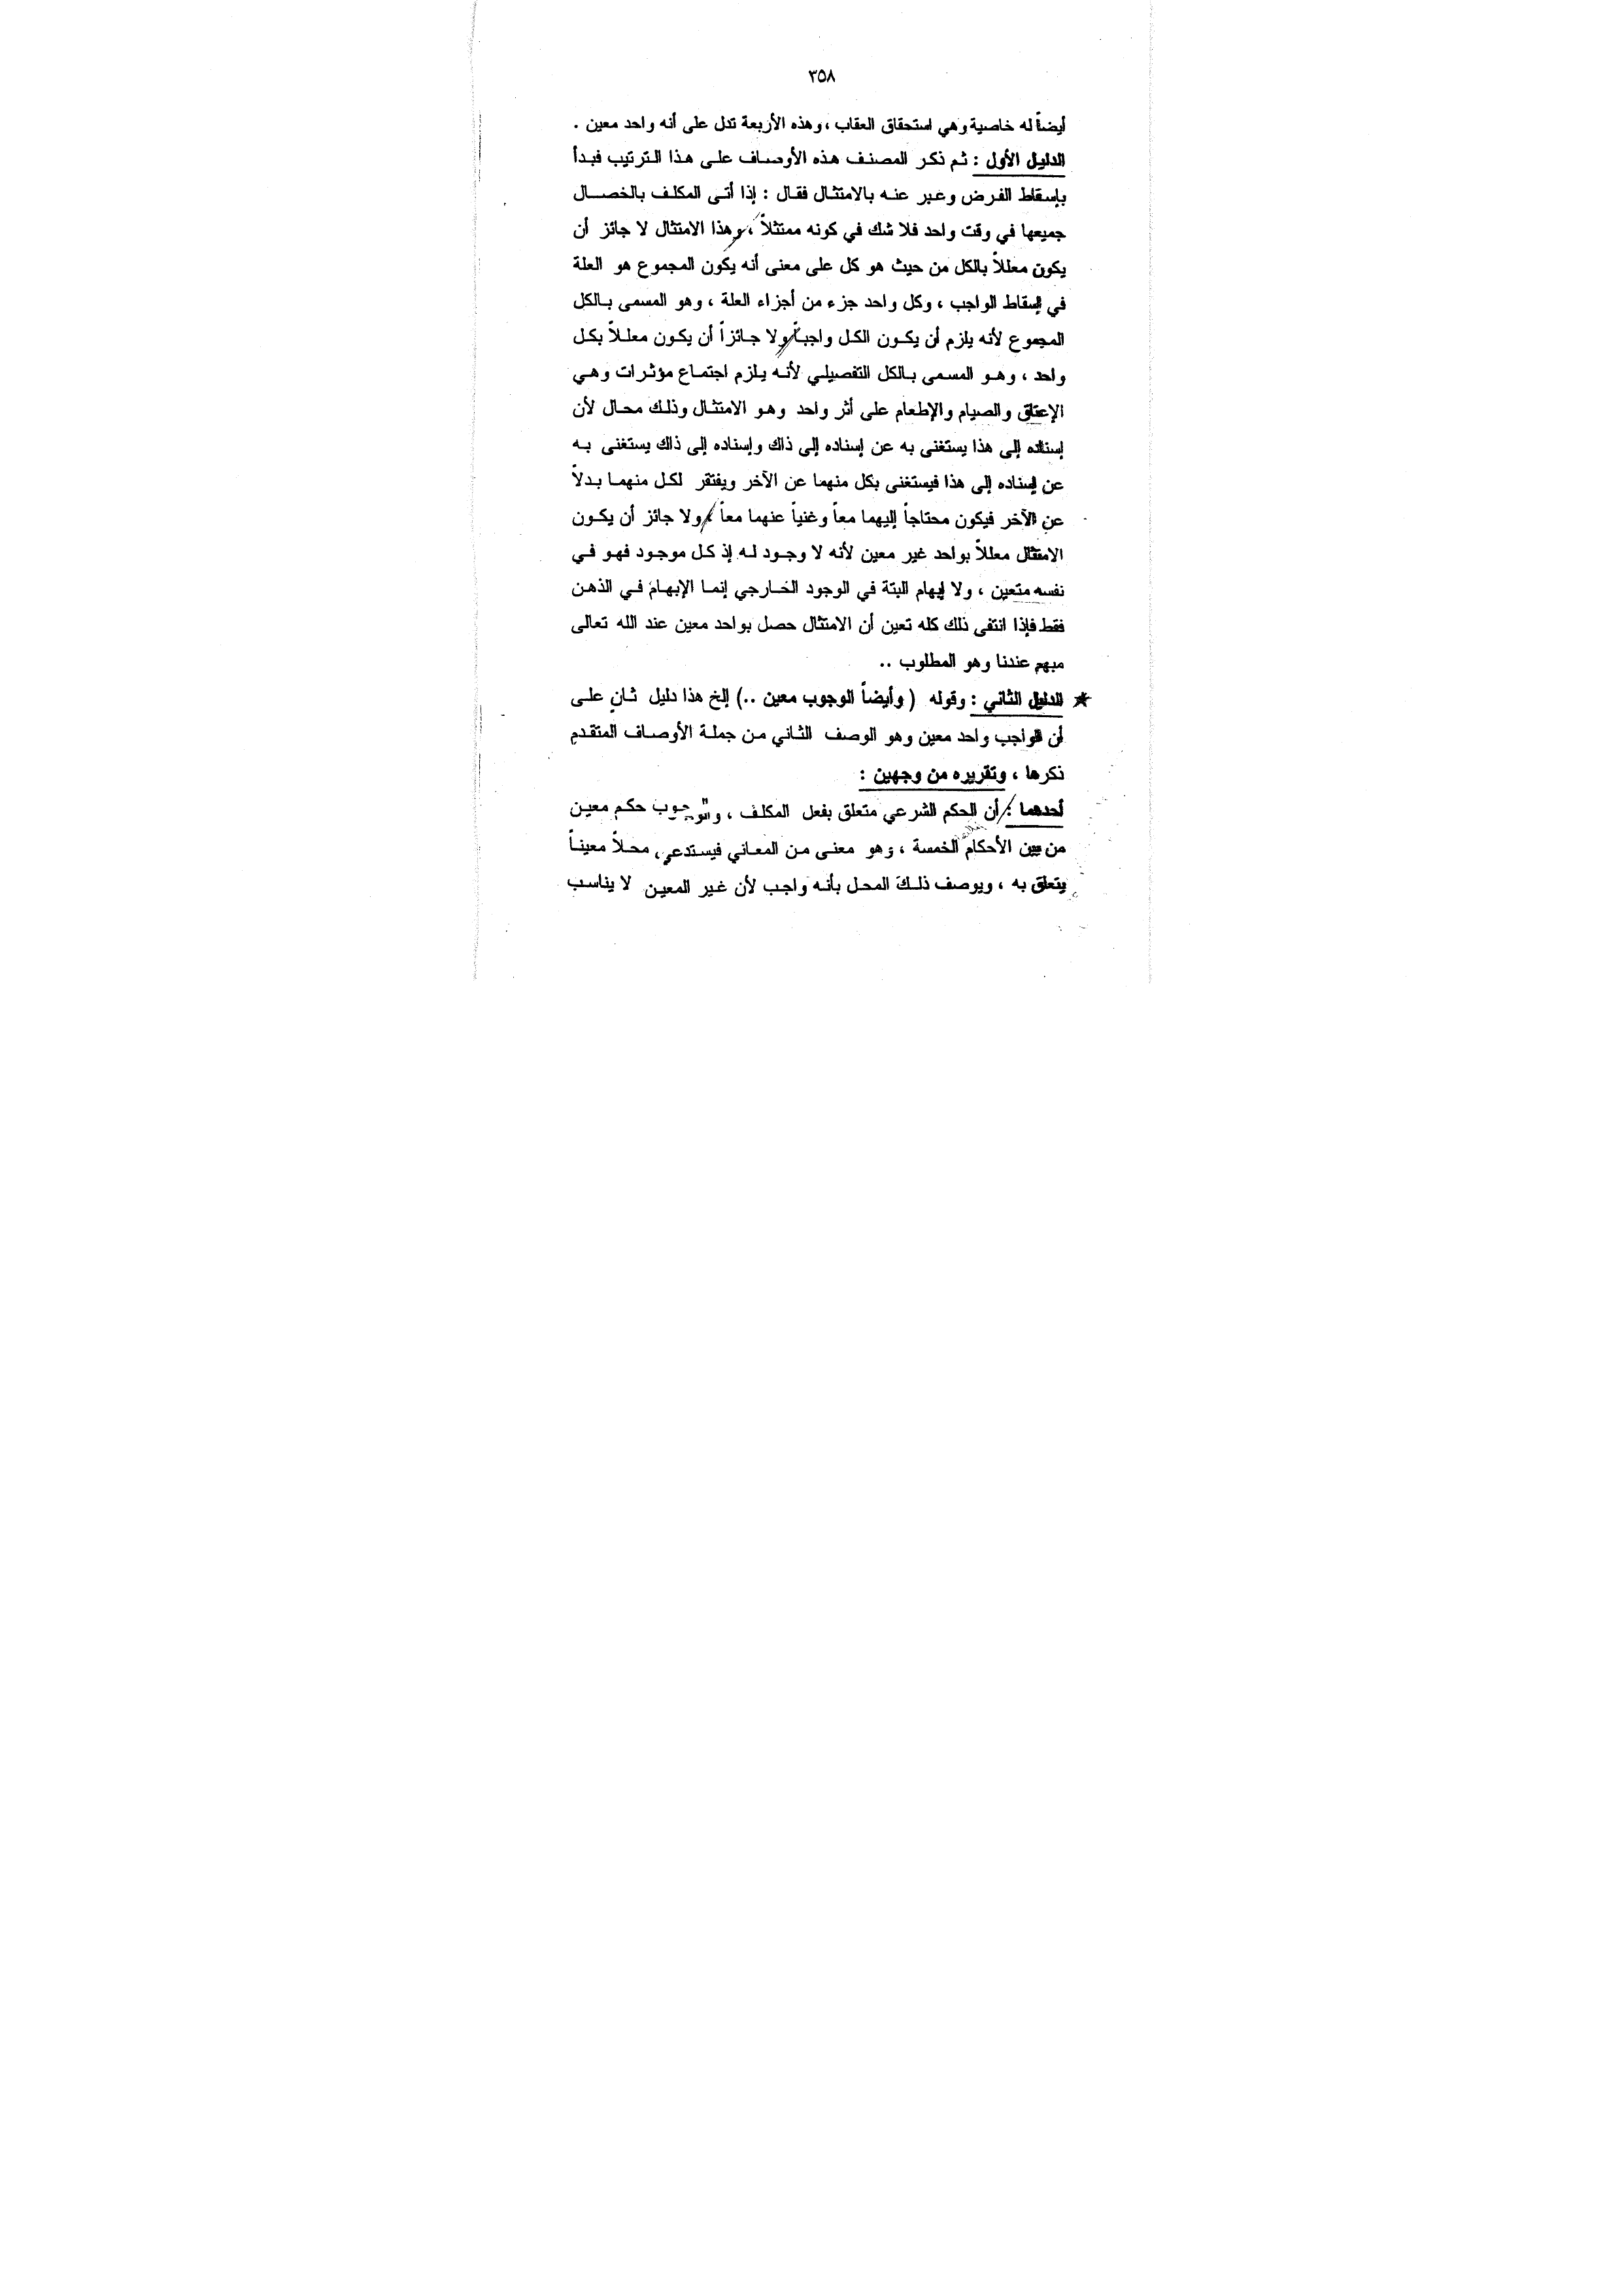 ٣٥٨
أيضاً له خاصية وهي استحقاق العقاب ، وهذه الأربعة تدل على أنه واحد معين .
الدليل الأول : ثم ذكر المصنف هذه الأوصاف على هذا الترتيب فبدأ
بإسقاط الفرض وعبر عنه بالامتثال فقال : إذا أتى المكلف بالخصال
جميعها في وقت واحد فلا شك في كونه ممتثلاً ، وهذا الامتثال لا جائز أن
يكون معللاً بالكل من حيث هو كل على معنى أنه يكون المجموع هو العلة
في إسقاط الواجب ، وكل واحد جزء من أجزاء العلة ، وهو المسمى بالكل
المجموع لأنه يلزم أن يكون الكل واجباً ولا جائزاً أن يكون معللاً بكل
واحد ، وهو المسمى بالكل التفصيلي لأنه يلزم اجتماع مؤثرات وهي
الإعتاق والصيام والإطعام على أثر واحد وهو الامتثال وذلك محال لأن
إسناده إلى هذا يستغنى به عن إسناده إلى ذاك وإسناده إلى ذاك يستغنى به
عن إسناده إلى هذا فيستغنى بكل منهما عن الآخر ويفتقر لكل منهما بدلاً
عن الآخر فيكون محتاجاً إليهما معاً وغنياً عنهما معاً ، ولا جائز أن يكون
الامتثال معللاً بواحد غير معين لأنه لا وجود له إذ كل موجود فهو في
نفسه متعين ، ولا إبهام البتة في الوجود الخارجي إنما الإبهام في الذهن
فقط فإذا انتفى ذلك كله تعين أن الامتثال حصل بواحد معين عند الله تعالى
مبهم عندنا وهو المطلوب ..
★ الدليل الثاني : وقوله ( وأيضاً الوجوب معين ..) إلخ هذا دليل ثانٍ على
أن الواجب واحد معين وهو الوصف الثاني من جملة الأوصاف المتقدم
ذكرها ، وتقريره من وجهين :
أحدهما : أن الحكم الشرعي متعلق بفعل المكلف ، والوجوب حكم معين
من بين الأحكام الخمسة ، وهو معنى من المعاني فيستدعي محلاً معيناً
يتعلق به ، ويوصف ذلك المحل بأنه واجب لأن غير المعين لا يناسب